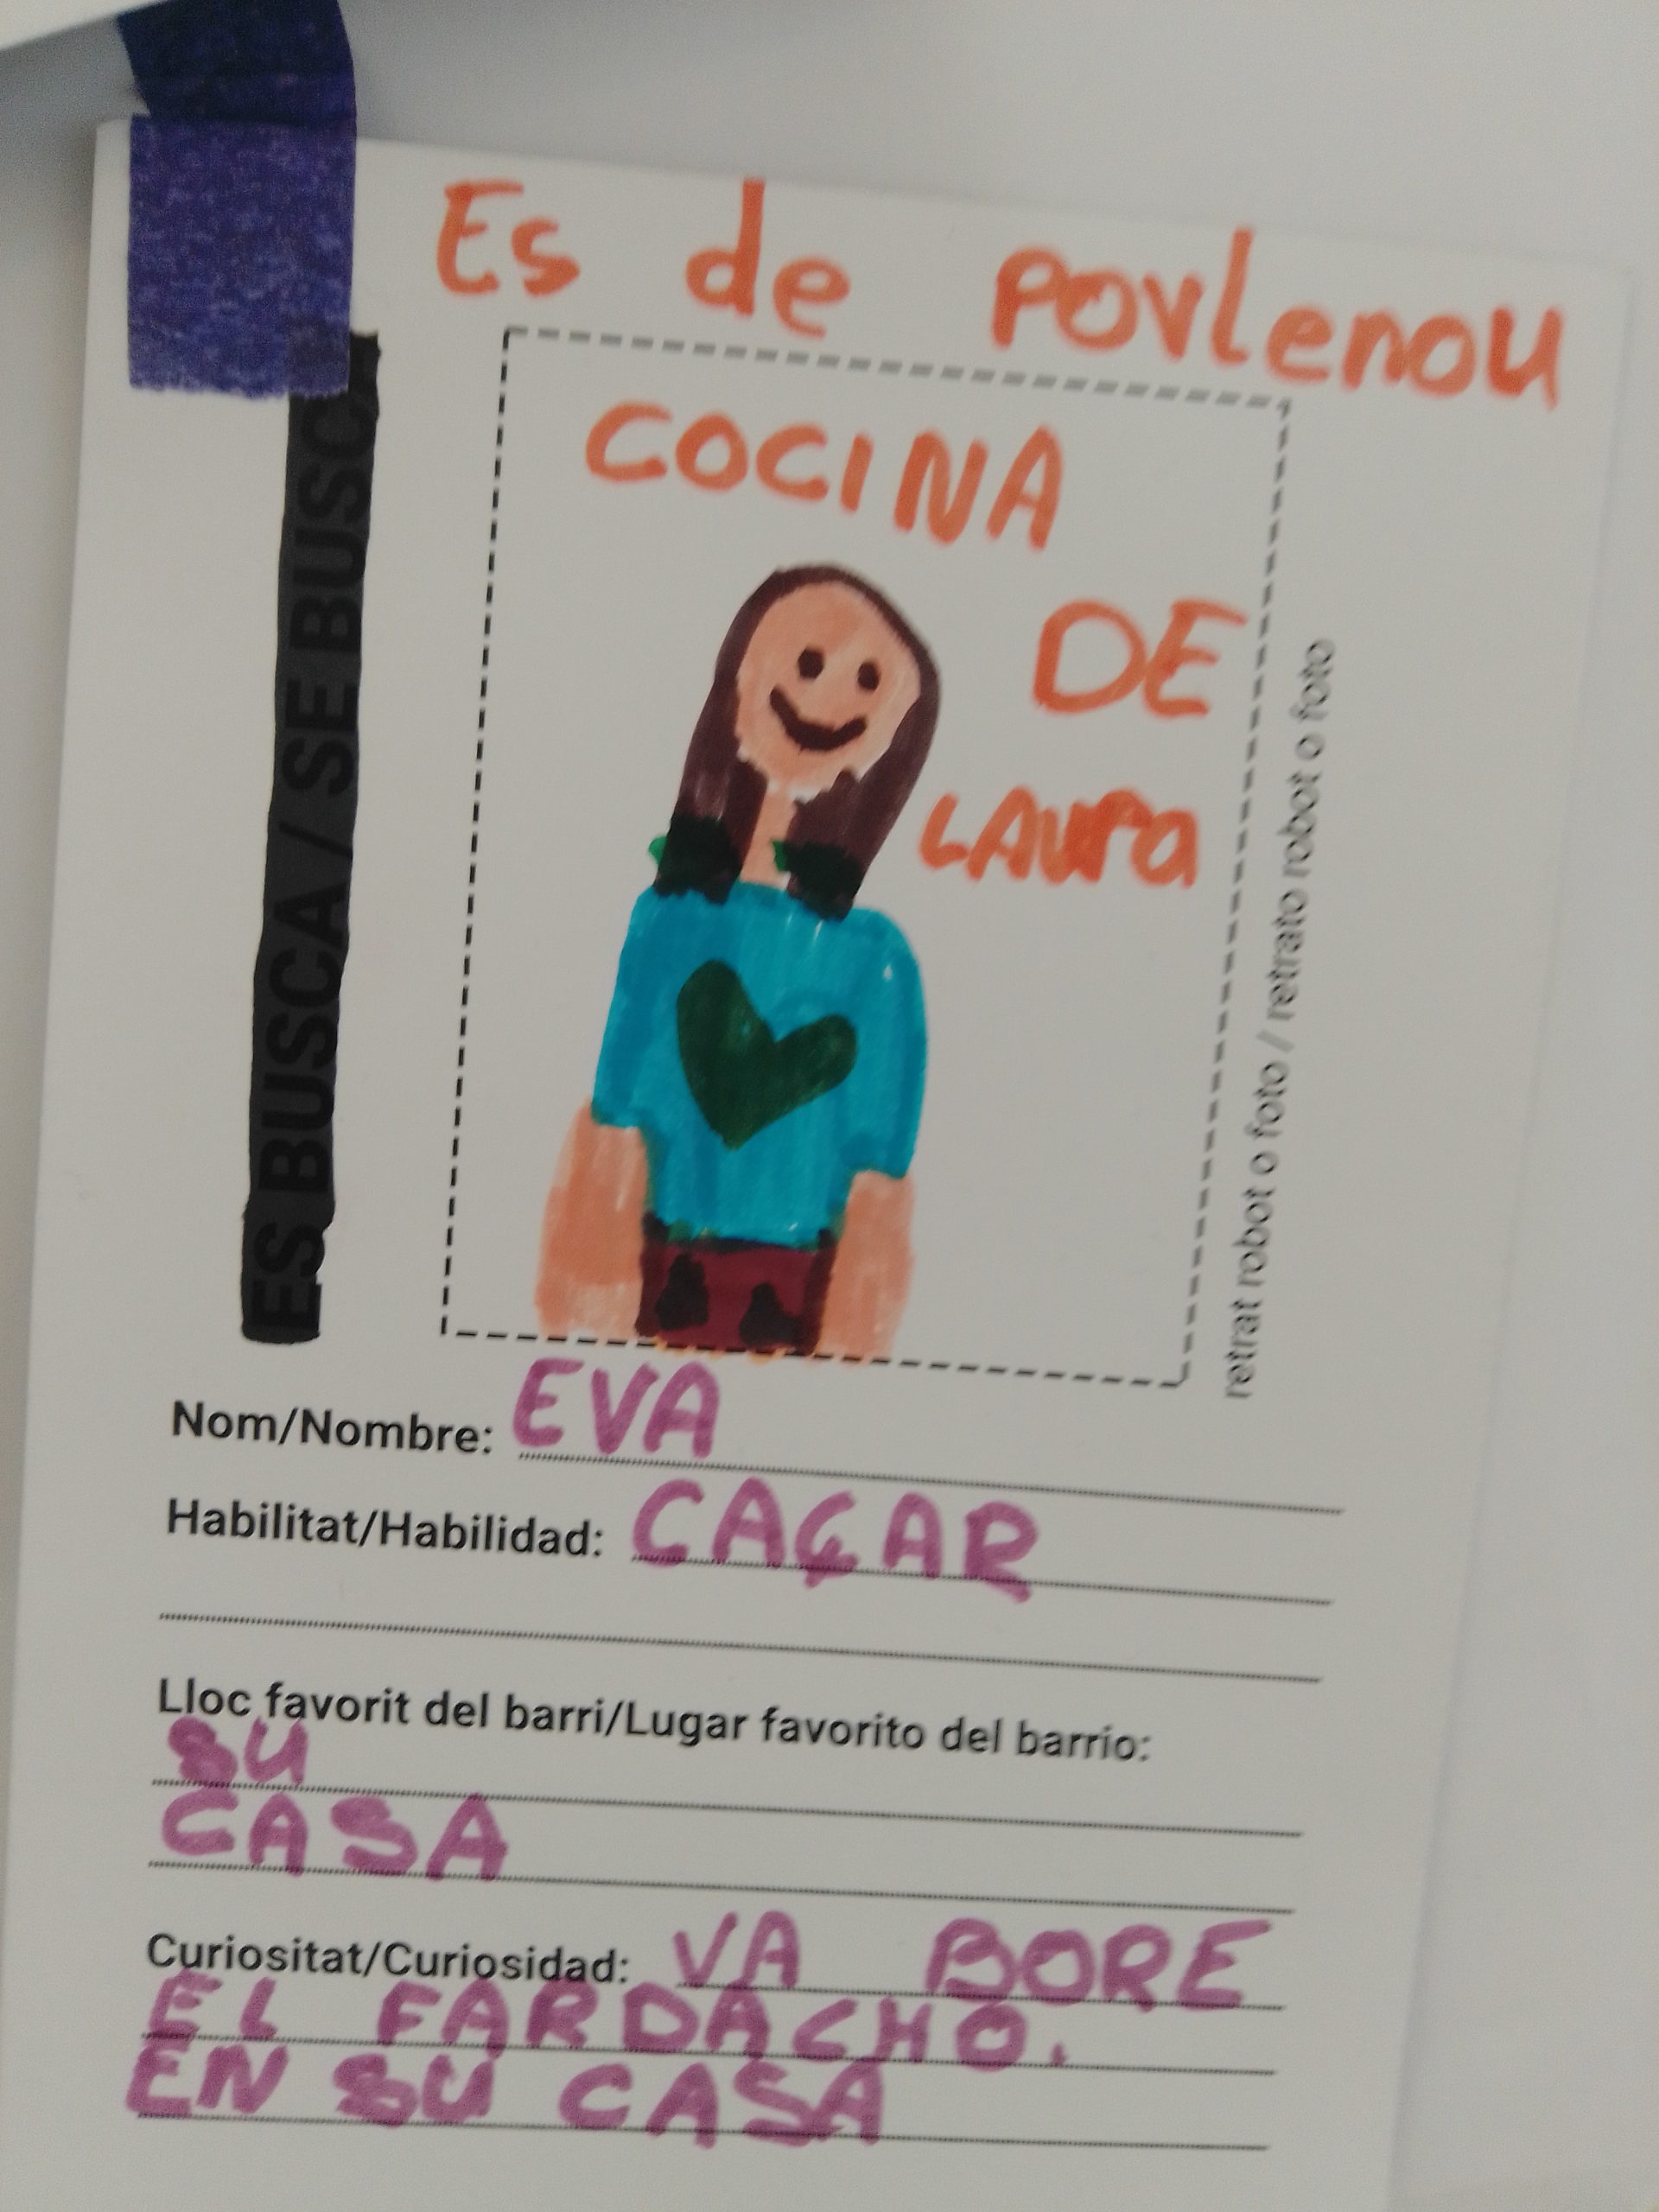 Es de povlenou
COCINA
DE
LAUra
ES BUSCA / SE BUSCA
retrat robot o foto / retrato robot o foto
Nom/Nombre: EVA
Habilitat/Habilidad: CAÇAR
Lloc favorit del barri/Lugar favorito del barrio:
SU
CASA
Curiositat/Curiosidad: VA BORE
EL FARDACHO.
EN SU CASA